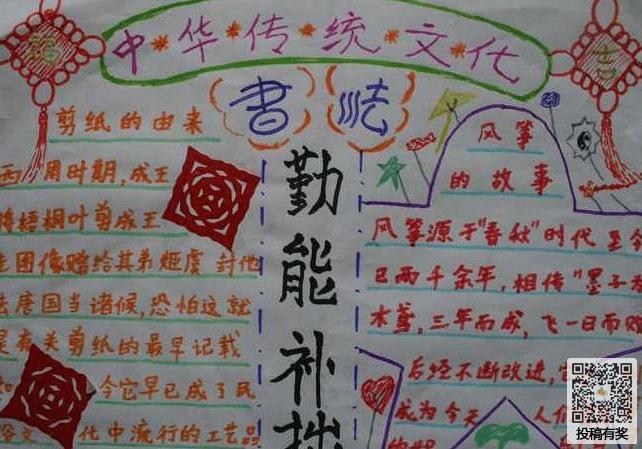 中华传统文化
福
吉
书法
剪纸的由来
西周时期,成王
将梧桐叶剪成王
圭图像赠给其弟姬虞 封他
去唐国当诸侯,恐怕这就
是有关剪纸的最早记载
今它早已成了民
俗文化中流行的工艺品
勤能补拙
风筝
的故事
风筝源于"春秋"时代至今
已两千余年,相传"墨子
木鸢,三年而成,飞一日而败
后经不断改进,
成为今天 人们
投稿有奖